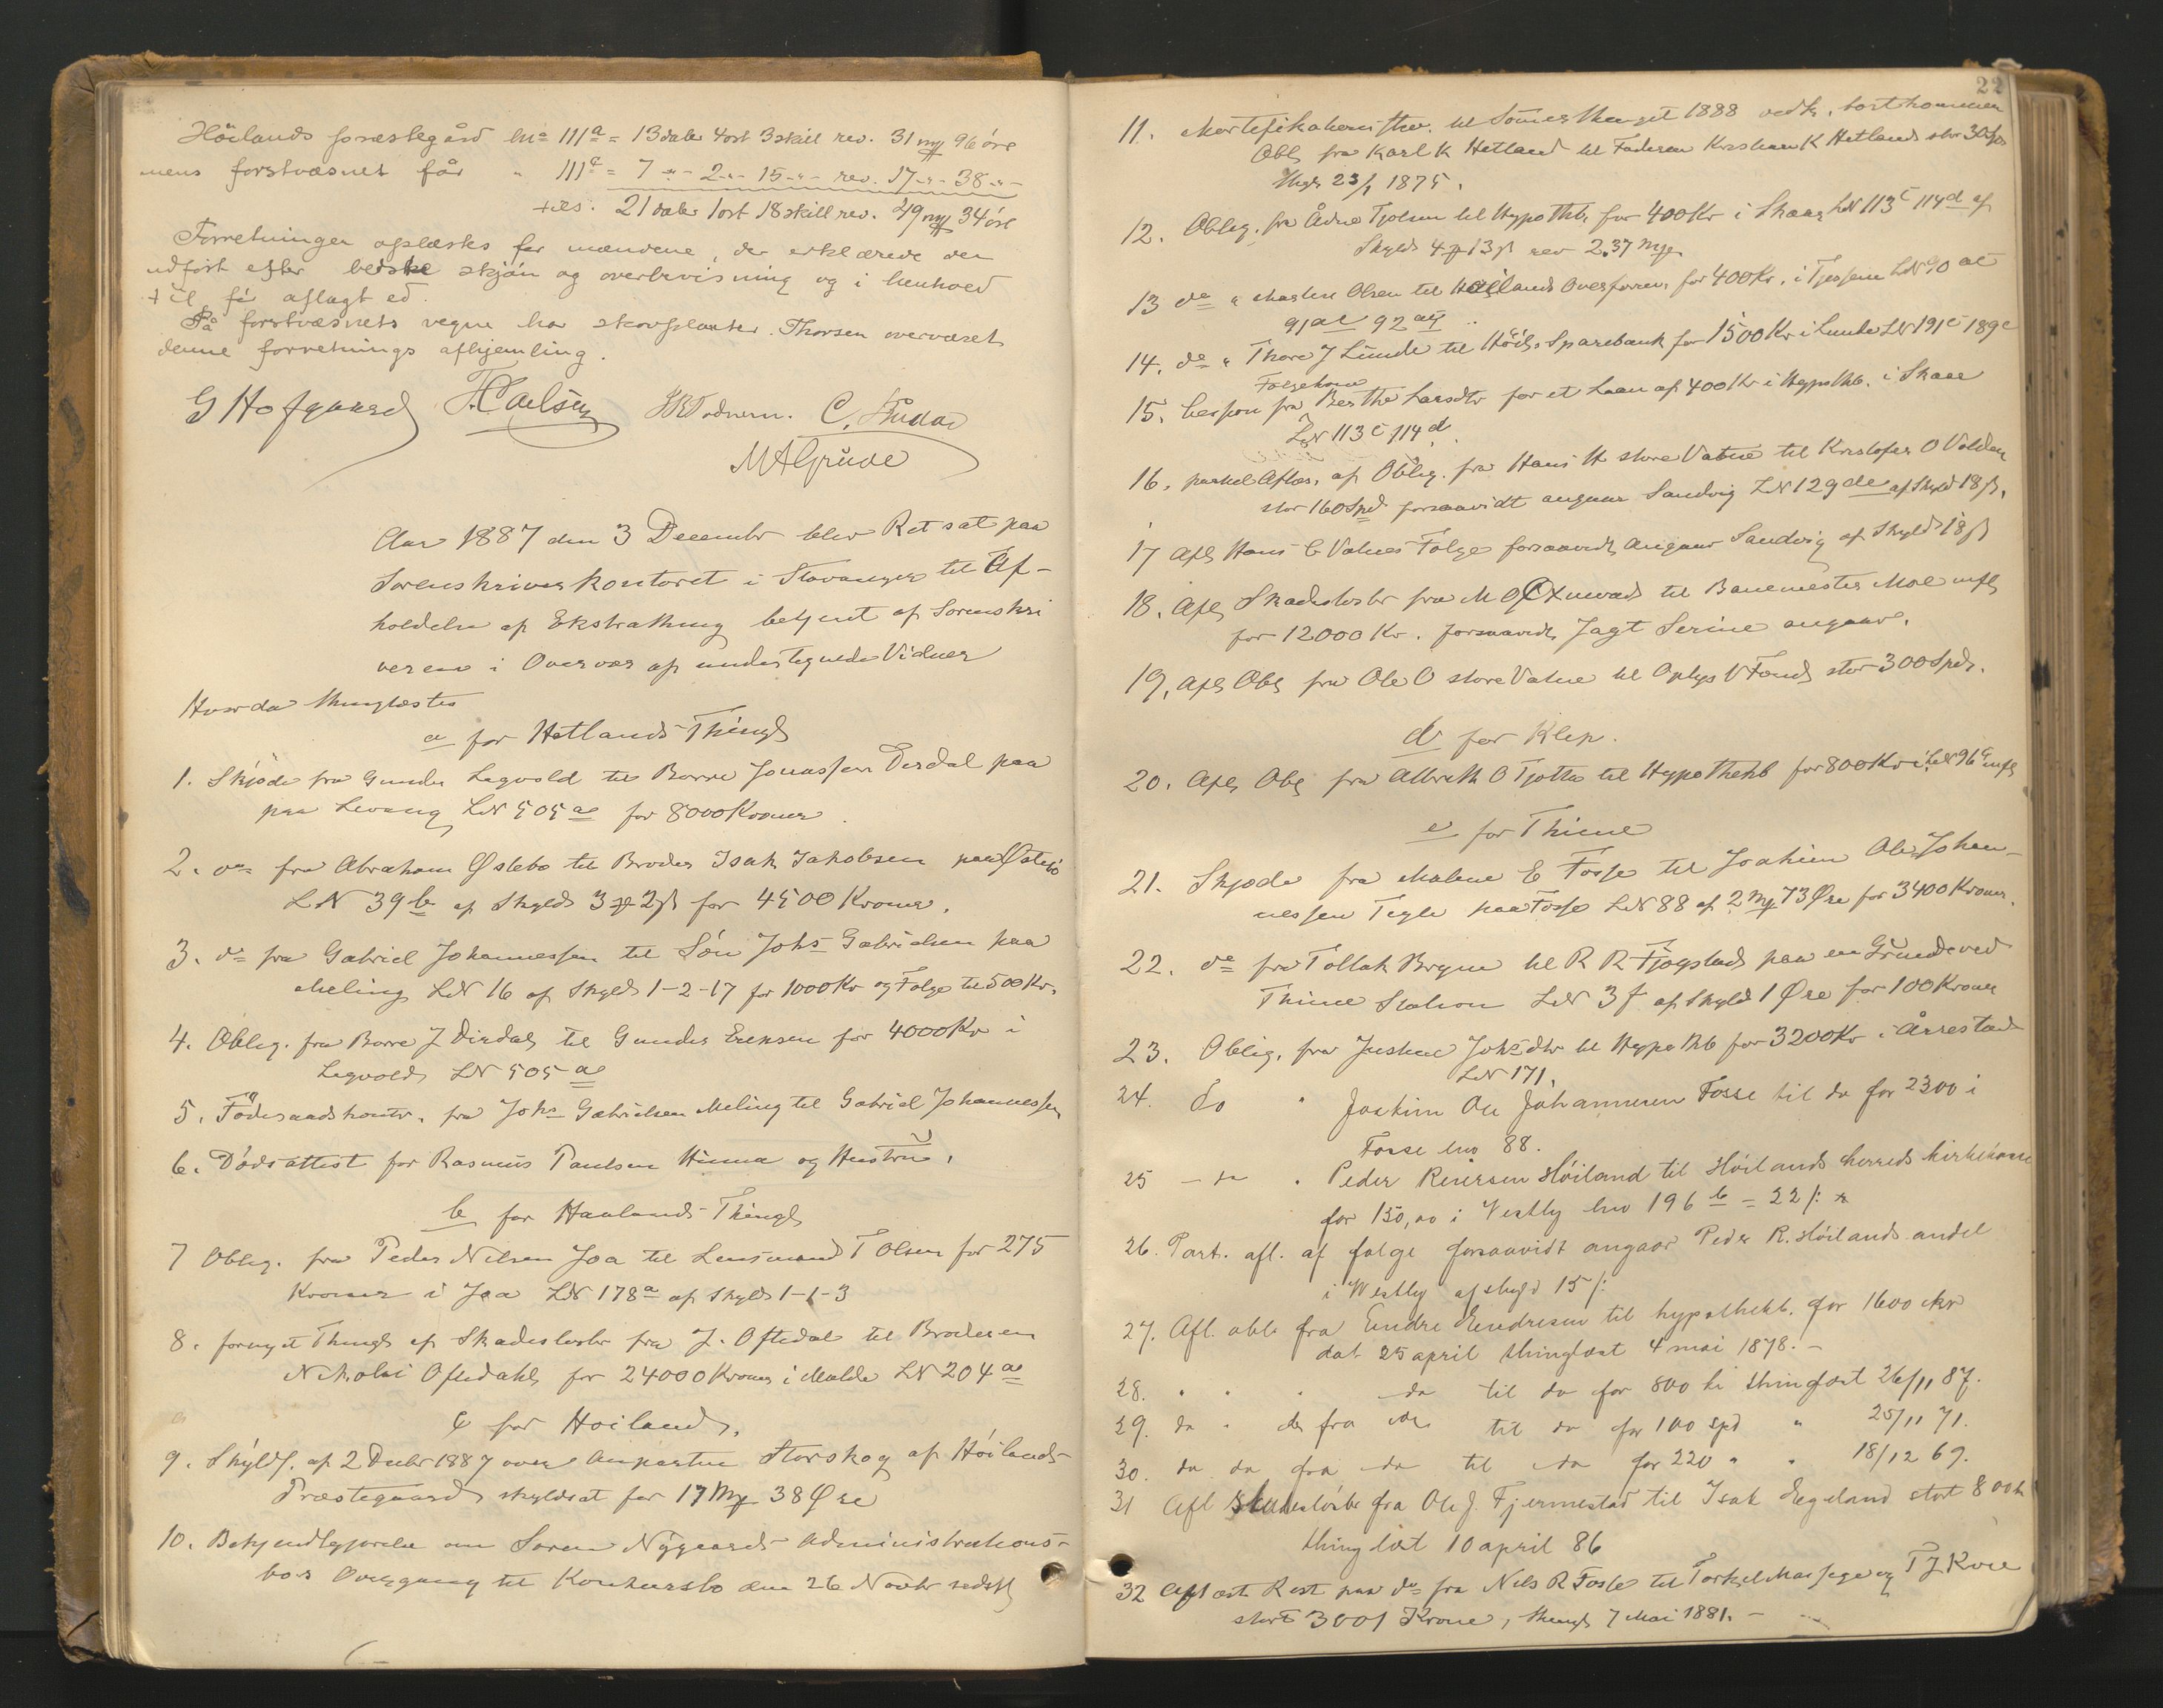 Höilands præstegård lno 111a = 13 daler 4 ort 3 skill rev. 31 my 96 öre
mens forstvæsnet får " 111c = 7 -"- 2 -"- 15 -"- rev. 17 -"- 38 -"-
tils. 21 daler 1 ort 18 skill rev. 49 my 34 öre
Forretningen oplæstes for mændene, der erklærede den
udfört efter bedste skjön og overbevisning og i henhold
til för aflagt ed.
På forstvæsnets vegne har skovplanter Thorsen overværet
denne forretnings afhjemling.
G Hofgaard
MAGrude
Aar 1887 den 3 December blev Ret sat paa
Sorenskriverkontoret i Stavanger til Af-
holdelse af Ekstrathing betjent af Sorenskri
veren i Overvær af undertegnede Vidner
Hvor da thinglæstes
a for Hetlands Thingl
1. Skjøde fra Gunder Legvold til Borre Jonassen Dirdal paa
paa Levang LN 505 a for 8000 Kroner
2. do fra Abraham Østebø til Broder Isak Jakobsen paa Østebö
LN 39 b af Skyld 3 2 ß for 4500 Kroner.
3. do fra Gabriel Johannessen til Sön Johs Gabrielsen paa
Meling LN 16 af Skyld 1-2-17 for 1000 Kr og Følge til 500 Kr.
4. Oblig. fra Borre J Dirdal til Gunder Eriksen for 4000 Kr i
Legvold LN 505 a
5. Föderaadskontr. fra Johs Gabrielsen Meling til Gabriel Johannessen
6. Dödsattest for Rasmus Paulsen Hinna og Hustru.
b for Haalands Thingl
7 Oblig. fra Peder Nilsen Joa til Lensmand T Olsen for 275
Kroner i Joa LN 178 a af Skyld 1-1-3
8. fornyet Thingl af Skadesløsbr fra J. Oftedal til Broderen
Nikolai Oftedahl for 24000 Kroner i Malde LN 204 a
c for Høiland,
9. Skyldf. af 2 Decbr 1887 over Anparten Storskog af Höilands
Præstegaard skyldsat for 17 My 38 Øre
10. Bekjendtgjørelse om Søren Nygaards Administrations-
bos Overgang til Konkursbo den 26 Novbr sidstl
22
11. Mortifikationsstevn. til Sommerthinget 1888 vedk. bortkommen
Obl fra Karl K Hetland til Faderen Kristian K Hetland stor 30 Spd
thgl 23/1 1875.
12. Oblig. fra Ådne Tjølsen til Hypothb for 400 Kr i Skaar LN 113c 114d af
Skyld 4 13 ß rev 2.37 My
13 do " Martin Olsen til Høilands Overform for 400 Kr. i Tjessem LN 90 ae
91 ae 92 ay
14. do " Thore J Lunde til Höil. Sparebank for 1500 Kr i Lunde LN 191c 189c
Følgekone
15. Cession fra Berthe Larsdtr for et Laan af 400 Kr i Hypothb. i Skaar
LN 113c 114d
16. partiel Aflæs. af Oblig. fra Hans H store Vatne til Kristofer O Volden
stor 160 Spd forsaavidt angaar Sandvig LN 129 de af Skyld 18 ß.
17 Afl Hans C Vatnes Følge forsaavidt angaar Sandvig af Skyld 18 ß
18. Afl Skadesløsbr fra M O til Banemester Moe mfl
for 12000 Kr. forsaavidt Jagt Serine angaar.
19. Afl Obl fra Ole O store Vatne til Oplys V Fond stor 300 Spd.
d for Klep.
20. Afl Obl fra Albreth O Tjøtta til Hypothekb for 800 Kr i LN 96 mfl
e for Thime
21. Skjøde fra Malene E Fosse til Joakim Ole Johan-
nessen Tegle paa Fosse LN 88 af 2 My 73 Øre for 3400 Kroner.
22. do fra Tollak Bryne til R R Fjogstad paa en Grund ved
Thime Station LN 3 f af Skyld 1 Øre for 100 Kroner
23. Oblig. fra Justine Johsdtr til Hypothb for 3200 Kr i Årrestad
LN 171.
24. do " Joakim Ole Johannesen Fosse til do for 2300 i
Fosse lno 88.
25 - do " Peder Reiersen Höiland til Höilands herreds kirkekasse
for 150,00 i Vestly lno 196 b = 22 ß
26. Part. afl. af følge forsaavidt angaar Peder R. Höilands andel
i Westly af skyld 15 ß
27. Afl. obl. fra Endre Endresen til hypothekb. for 1600 kr
dat 25 april thinglæst 4 mai 1878. -
28. " " " do til do for 800 kr thinglæst 26/11 87.
29. do " do fra do til do for 100 spd " 25/11 71.
30. do do fra do til do for 220 " " 18/12 69.
31 Afl skadeslösbr fra Ole J. Fjermestad til Isak Egeland stort 800 kr
thinglæst 10 april 86
32 Aflæst Rest paa do fra Nils R Fosse til Torkel Mossige og T J Kvie
stort 3001 Krone, thingl 7 Mai 1881. -